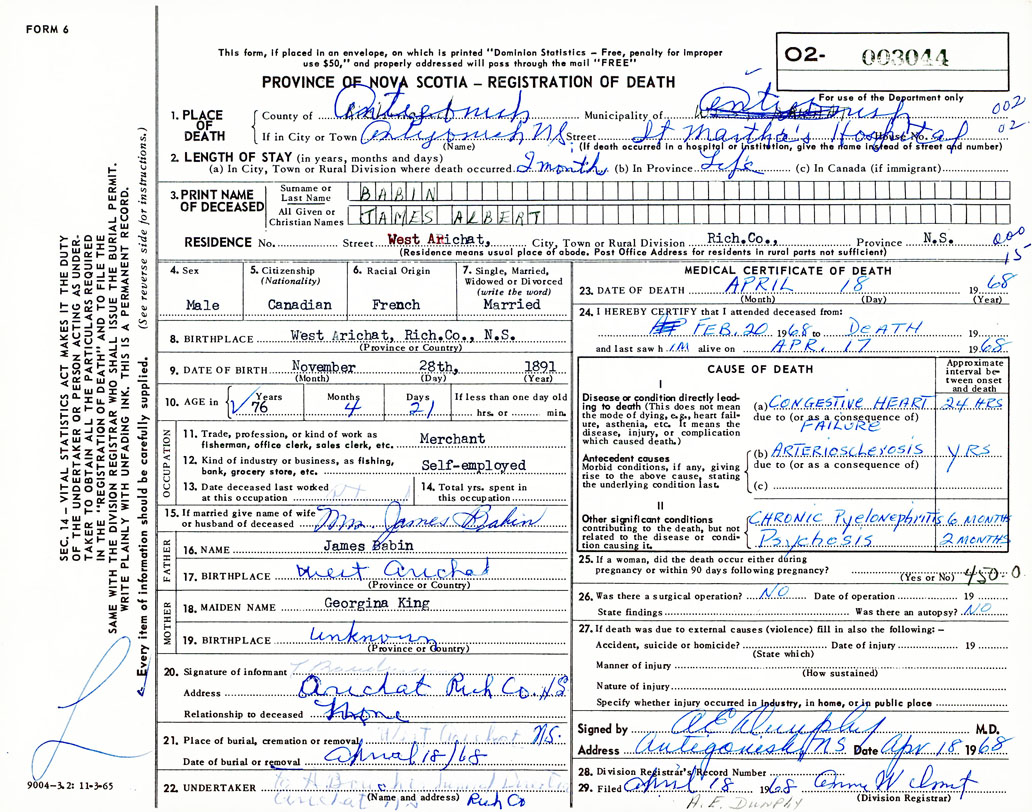 FORM 6
This form, if placed in an envelope, on which is printed "Dominion Statistics – Free, penalty for improper
use $50," and properly addressed will pass through the mail "FREE"
PROVINCE OF NOVA SCOTIA – REGISTRATION OF DEATH
02- 003044
For use of the Department only
002
02
1. PLACE OF DEATH
County of Antigonish Municipality of Antigonish
If in City or Town Antigonish NS Street St Martha's Hospital House No.
(Name) (If death occurred in a hospital or institution, give the name instead of street and number)
2. LENGTH OF STAY (in years, months and days)
(a) In City, Town or Rural Division where death occurred 2 month (b) In Province Life (c) In Canada (if immigrant)
3. PRINT NAME OF DECEASED
Surname or Last Name BABIN
All Given or Christian Names JAMES ALBERT
RESIDENCE No. Street West Arichat, City, Town or Rural Division Rich.Co., Province N.S.
(Residence means usual place of abode. Post Office Address for residents in rural parts not sufficient)
000
15
4. Sex Male
5. Citizenship (Nationality) Canadian
6. Racial Origin French
7. Single, Married, Widowed or Divorced (write the word) Married
8. BIRTHPLACE West Arichat, Rich.Co., N.S.
(Province or Country)
9. DATE OF BIRTH November 28th, 1891
(Month) (Day) (Year)
10. AGE in Years 76 Months 4 Days 21 If less than one day old hrs. or min.
OCCUPATION
11. Trade, profession, or kind of work as fisherman, office clerk, sales clerk, etc. Merchant
12. Kind of industry or business, as fishing, bank, grocery store, etc. Self-employed
13. Date deceased last worked at this occupation
14. Total yrs. spent in this occupation
15. If married give name of wife or husband of deceased Mrs. James Babin
FATHER
16. NAME James Babin
17. BIRTHPLACE West Arichat
(Province or Country)
MOTHER
18. MAIDEN NAME Georgina King
19. BIRTHPLACE unknown
(Province or Country)
20. Signature of informant
Address Arichat Rich Co. N.S
Relationship to deceased None
21. Place of burial, cremation or removal West Arichat NS.
Date of burial or removal April 18/68
22. UNDERTAKER
(Name and address) Arichat NS Rich Co
MEDICAL CERTIFICATE OF DEATH
23. DATE OF DEATH APRIL 18 1968
(Month) (Day) (Year)
24. I HEREBY CERTIFY that I attended deceased from:
FEB. 20 1968 to DEATH 19
and last saw h im alive on APR. 17 1968
CAUSE OF DEATH
Approximate interval between onset and death
I
Disease or condition directly leading to death (This does not mean the mode of dying, e.g., heart failure, asthenia, etc. It means the disease, injury, or complication which caused death.)
(a) CONGESTIVE HEART FAILURE 24 HRS
due to (or as a consequence of)
Antecedent causes
Morbid conditions, if any, giving rise to the above cause, stating the underlying condition last.
(b) ARTERIOSCLEROSIS YRS
due to (or as a consequence of)
(c)
II
Other significant conditions contributing to the death, but not related to the disease or condition causing it.
CHRONIC Pyelonephritis 6 MONTHS
Psychosis 2 MONTHS
25. If a woman, did the death occur either during pregnancy or within 90 days following pregnancy?
(Yes or No) 450.0
26. Was there a surgical operation? NO Date of operation 19
State findings Was there an autopsy? NO
27. If death was due to external causes (violence) fill in also the following: –
Accident, suicide or homicide? Date of injury 19
(State which)
Manner of injury
(How sustained)
Nature of injury
Specify whether injury occurred in Industry, in home, or in public place
Signed by A E Dunphy M.D.
Address Antigonish, NS Date Apr 18 1968
28. Division Registrar's Record Number
29. Filed April 18 1968
(Division Registrar)
A. E. DUNPHY
SEC. 14 – VITAL STATISTICS ACT MAKES IT THE DUTY
OF THE UNDERTAKER OR PERSON ACTING AS UNDER-
TAKER TO OBTAIN ALL THE PARTICULARS REQUIRED
IN THE "REGISTRATION OF DEATH" AND TO FILE THE
SAME WITH THE DIVISION REGISTRAR WHO SHALL ISSUE THE BURIAL PERMIT.
WRITE PLAINLY WITH UNFADING INK. THIS IS A PERMANENT RECORD.
Every item of information should be carefully supplied. (See reverse side for instructions.)
9004-3.2: 11-3-65